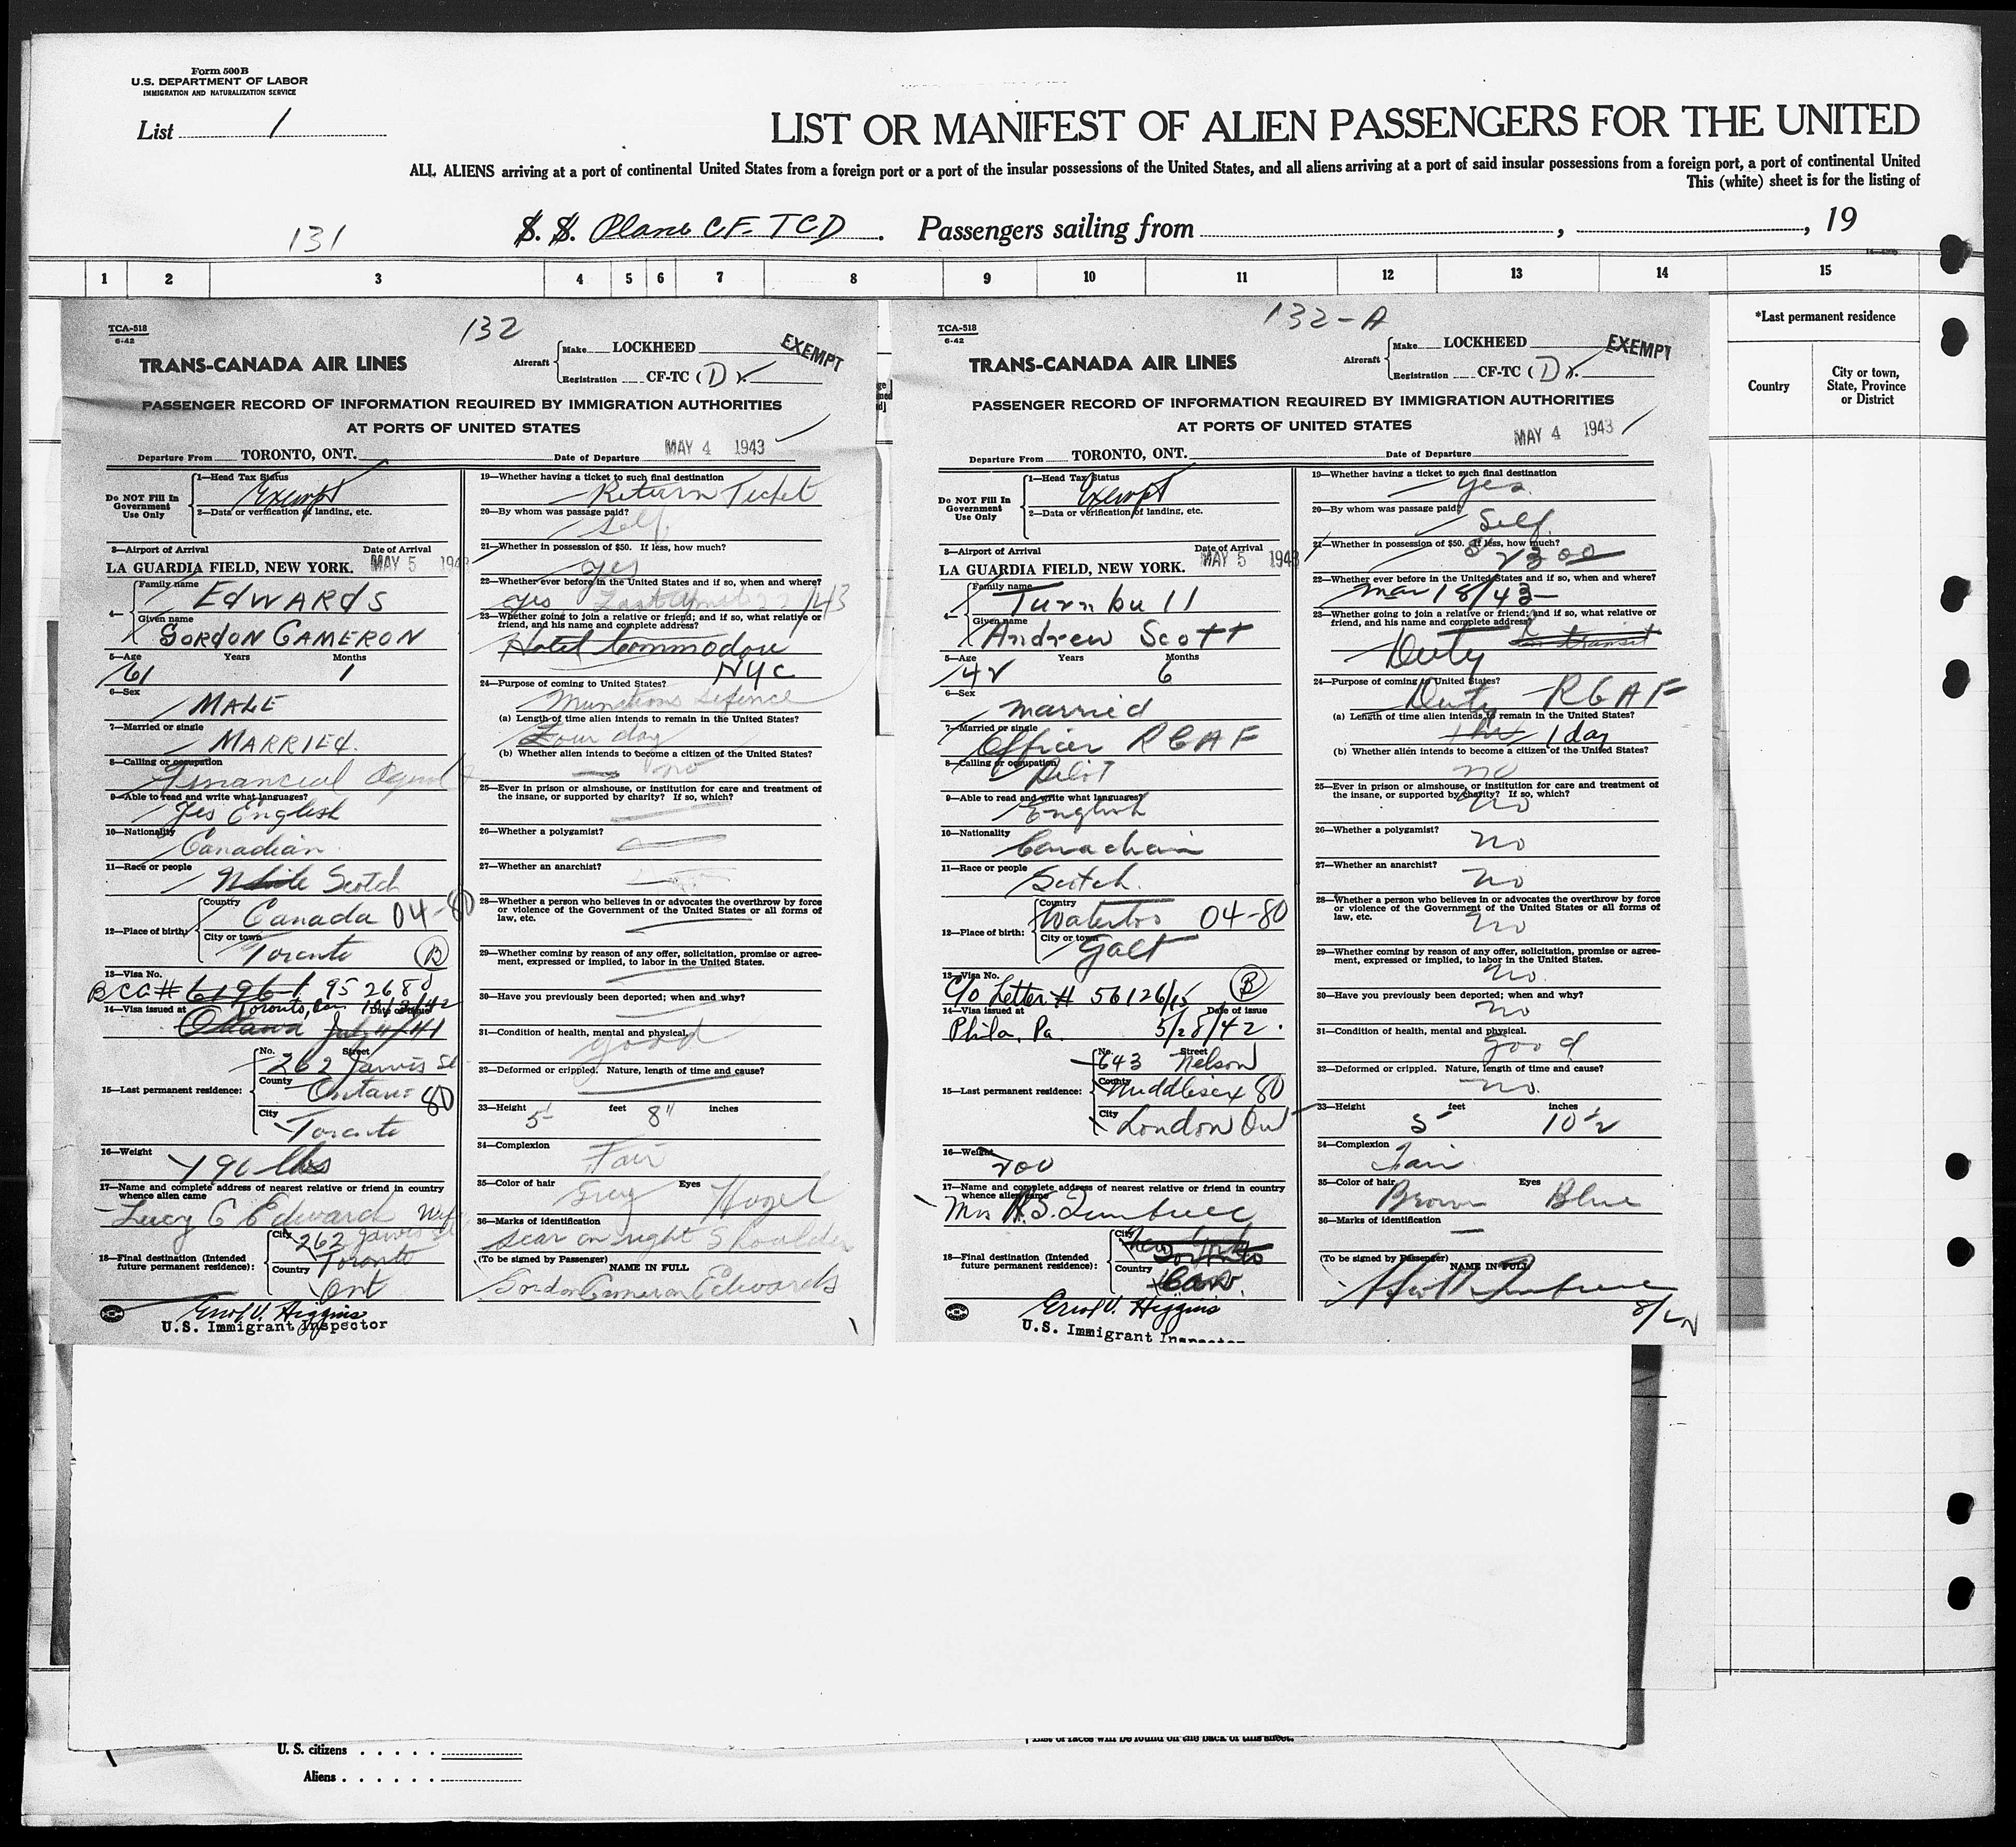 Form 500 B
U.S. DEPARTMENT OF LABOR
IMMIGRATION AND NATURALIZATION SERVICE
List 1
LIST OR MANIFEST OF ALIEN PASSENGERS FOR THE UNITED
ALL ALIENS arriving at a port of continental United States from a foreign port or a port of the insular possessions of the United States, and all aliens arriving at a port of said insular possessions from a foreign port, a port of continental United
This (white) sheet is for the listing of
131 S. S. Plane CF-TCD. Passengers sailing from , , 19
1 2 3 4 5 6 7 8 9 10 11 12 13 14 15
*Last permanent residence
Country
City or town, State, Province or District
TCA-518
6-42
132
TRANS-CANADA AIR LINES
Aircraft Make LOCKHEED
Registration CF-TC (D)
EXEMPT
PASSENGER RECORD OF INFORMATION REQUIRED BY IMMIGRATION AUTHORITIES
AT PORTS OF UNITED STATES
Departure From TORONTO, ONT. Date of Departure MAY 4 1943
Do NOT Fill In Government Use Only
1—Head Tax Status
Exempt
2—Data or verification of landing, etc.
3—Airport of Arrival Date of Arrival
LA GUARDIA FIELD, NEW YORK. MAY 5 1943
4— Family name
EDWARDS
Given name
GORDON CAMERON
5—Age Years Months
61 1
6—Sex
MALE
7—Married or single
MARRIED.
8—Calling or occupation
Financial Agent
9—Able to read and write what languages?
Yes English
10—Nationality
Canadian
11—Race or people
White Scotch
12—Place of birth: Country
Canada 04-80
City or town
Toronto (B)
13—Visa No.
BCC # 61961 952680
14—Visa issued at Date of issue
Toronto, Can
Ottawa July 11/41
15—Last permanent residence: No. Street
262 Jarvis St
County
Ontario 80
City
Toronto
16—Weight
190 lbs
17—Name and complete address of nearest relative or friend in country whence alien came
Lucy C Edward Wife
262 Jarvis St
18—Final destination (Intended future permanent residence): City
Toronto
Country
Ont
Errol V. Higgins
U.S. Immigrant Inspector
19—Whether having a ticket to such final destination
Return Ticket
20—By whom was passage paid?
Self
21—Whether in possession of $50. If less, how much?
yes
22—Whether ever before in the United States and if so, when and where?
yes
23—Whether going to join a relative or friend; and if so, what relative or friend, and his name and complete address?
Hotel Commodore
NYC
24—Purpose of coming to United States?
Munitions Defence
(a) Length of time alien intends to remain in the United States?
Four day
(b) Whether alien intends to become a citizen of the United States?
no
25—Ever in prison or almshouse, or institution for care and treatment of the insane, or supported by charity? If so, which?
26—Whether a polygamist?
27—Whether an anarchist?
28—Whether a person who believes in or advocates the overthrow by force or violence of the Government of the United States or all forms of law, etc.
29—Whether coming by reason of any offer, solicitation, promise or agreement, expressed or implied, to labor in the United States.
30—Have you previously been deported; when and why?
31—Condition of health, mental and physical.
good
32—Deformed or crippled. Nature, length of time and cause?
33—Height 5 feet 8" inches
34—Complexion
Fair
35—Color of hair Grey Eyes Hazel
36—Marks of identification
Scar on right Shoulder
(To be signed by Passenger) NAME IN FULL
Gordon Cameron Edwards
TCA-518
6-42
132-A
TRANS-CANADA AIR LINES
Aircraft Make LOCKHEED
Registration CF-TC (D)
EXEMPT
PASSENGER RECORD OF INFORMATION REQUIRED BY IMMIGRATION AUTHORITIES
AT PORTS OF UNITED STATES
Departure From TORONTO, ONT. Date of Departure MAY 4 1943
Do NOT Fill In Government Use Only
1—Head Tax Status
Exempt
2—Data or verification of landing, etc.
3—Airport of Arrival Date of Arrival
LA GUARDIA FIELD, NEW YORK. MAY 5 1943
4— Family name
Turnbull
Given name
Andrew Scott
5—Age Years Months
42 6
6—Sex
married
7—Married or single
Officer RCAF
8—Calling or occupation
Pilot
9—Able to read and write what languages?
English
10—Nationality
Canadian
11—Race or people
Scotch.
12—Place of birth: Country
Waterloo 04-80
City or town
Galt
13—Visa No.
C/O Letter # 56126/15 (B)
14—Visa issued at Date of issue
Phila. Pa. 5/28/42.
15—Last permanent residence: No. Street
643 Nelson
County
Middlesex 80
City
London Ont
16—Weight
200
17—Name and complete address of nearest relative or friend in country whence alien came
Mrs A.S. Turnbull
18—Final destination (Intended future permanent residence): City
New York
Toronto
Country
Can.
Errol V. Higgins
U.S. Immigrant Inspector
19—Whether having a ticket to such final destination
Yes
20—By whom was passage paid?
Self
21—Whether in possession of $50. If less, how much?
$23 00
22—Whether ever before in the United States and if so, when and where?
Mar 18/43
23—Whether going to join a relative or friend; and if so, what relative or friend, and his name and complete address?
Duty In transit
24—Purpose of coming to United States?
Duty RCAF
(a) Length of time alien intends to remain in the United States?
1 day
(b) Whether alien intends to become a citizen of the United States?
no
25—Ever in prison or almshouse, or institution for care and treatment of the insane, or supported by charity? If so, which?
no
26—Whether a polygamist?
no
27—Whether an anarchist?
no
28—Whether a person who believes in or advocates the overthrow by force or violence of the Government of the United States or all forms of law, etc.
no
29—Whether coming by reason of any offer, solicitation, promise or agreement, expressed or implied, to labor in the United States.
no.
30—Have you previously been deported; when and why?
no
31—Condition of health, mental and physical.
good
32—Deformed or crippled. Nature, length of time and cause?
no.
33—Height 5 feet 10 1/2 inches
34—Complexion
Fair
35—Color of hair Brown Eyes Blue
36—Marks of identification
(To be signed by Passenger) NAME IN FULL
U. S. citizens
Aliens
List of races will be found on the back of this sheet.